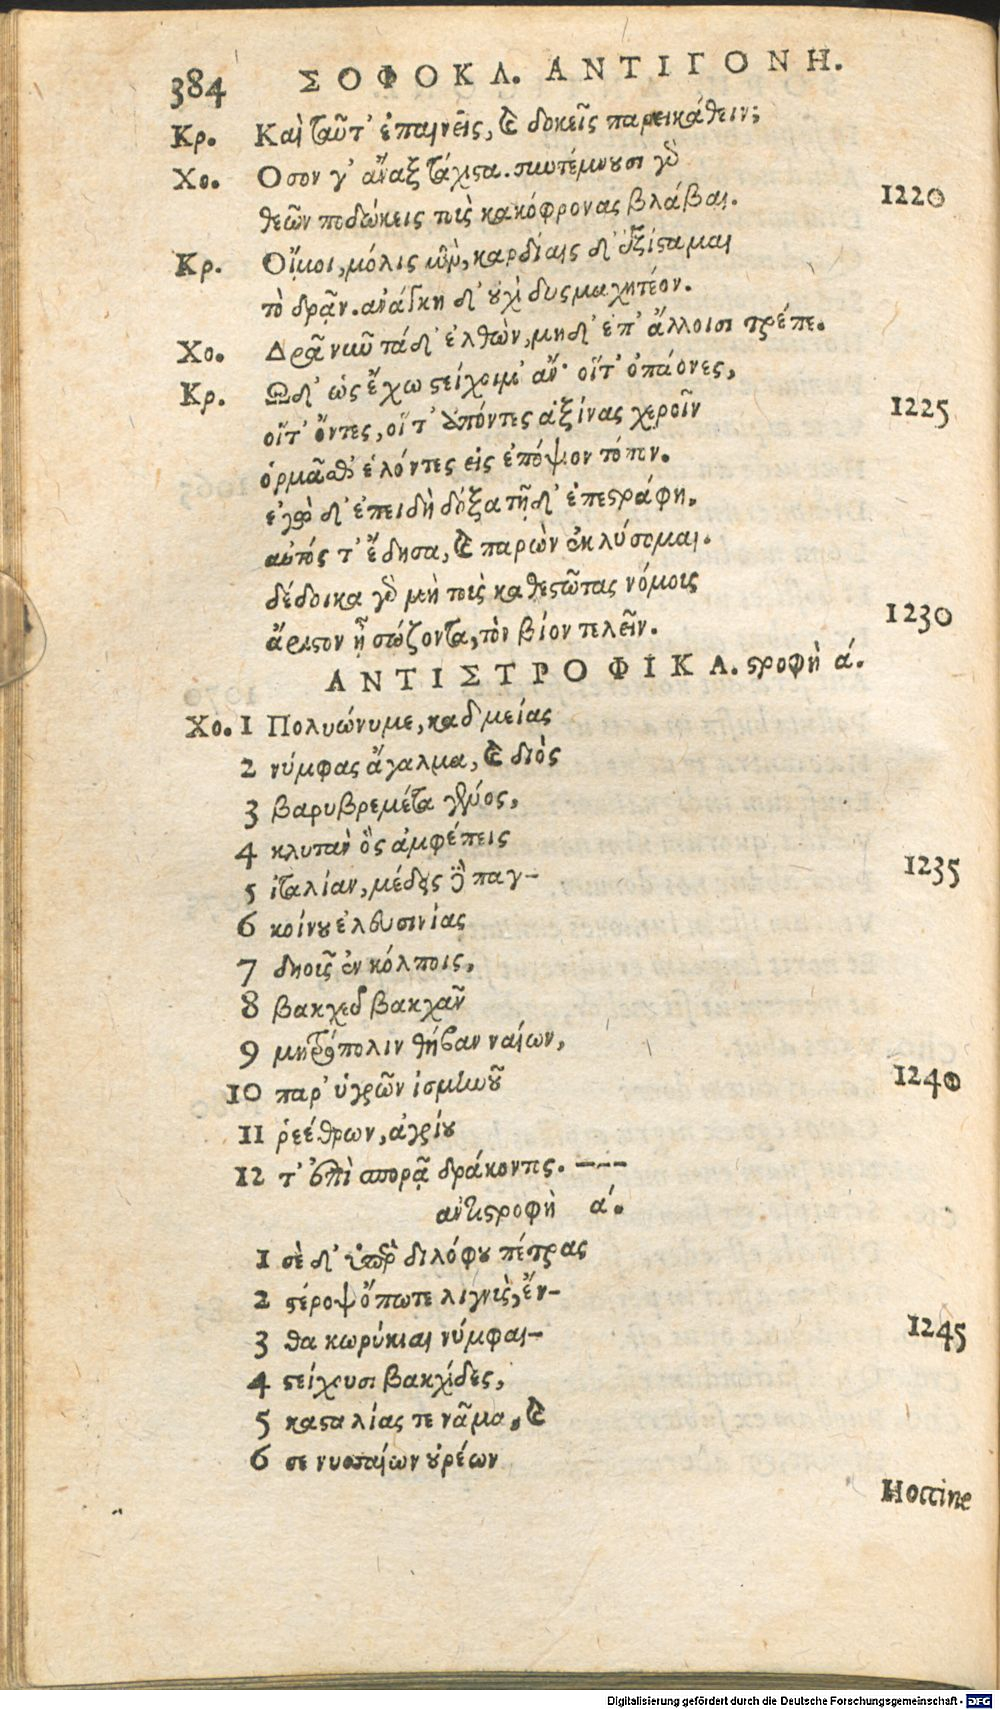 384 ΣΟΦΟΚΛ. ΑΝΤΙΓΟΝΗ.
Κρ. Καὶ ταῦτ' ἐπαινεῖς, καὶ δοκεῖς παρεικάθειν;
Χο. Οσον γ' ἄναξ τάχιστα. συντέμνουσι γὰρ
θεῶν ποδώκεις τοὺς κακόφρονας βλάβαι. 1220
Κρ. Οἴμοι, μόλις μὲν, καρδίας δ' ἐξίσταμαι
τὸ δρᾷν. ἀνάγκη δ' οὐχὶ δυσμαχητέον.
Χο. Δρᾶ νυῦ τάδ' ἐλθὼν, μηδ' ἐπ' ἄλλοισι τρέπε.
Κρ. Ωδ' ὡς ἔχω στείχοιμ' ἄν· οἵτ' ὀπάονες,
οἵτ' ὄντες, οἵ τ' ἀπόντες ἀξίνας χεροῖν 1225
ὁρμᾶσθ' ἑλόντες εἰς ἐπόψιον τόπον.
ἐγὼ δ' ἐπειδὴ δόξα τῇδ' ἐπεστράφη,
αὐτός τ' ἔδησα, καὶ παρὼν ἐκλύσομαι.
δέδοικα γὰρ μὴ τοὺς καθεστῶτας νόμους
ἄριστον ᾖ σώζοντα, τὸν βίον τελεῖν. 1230
ΑΝΤΙΣΤΡΟΦΙΚΑ. στροφὴ ά.
Χο. 1 Πολυώνυμε, καδμείας
2 νύμφας ἄγαλμα, καὶ διὸς
3 βαρυβρεμέτα γένος,
4 κλυτὰν ὃς ἀμφέπεις
5 ἰταλίαν, μέδεις δὲ παγ- 1235
6 κοίνου ἐλευσινίας
7 δηοῦς ἐν κόλποις,
8 βακχεῦ βακχᾶν
9 μητρόπολιν θήβαν ναίων,
10 παρ' ὑγρῶν ἰσμηνοῦ 1240
11 ῥεέθρων, ἀγρίου
12 τ' ἐπὶ σπορᾷ δράκοντος. ---
ἀντιστροφὴ ά.
1 σὲ δ' ὑπὲρ διλόφου πέτρας
2 στέροψ ὄπωπε λιγνὺς, ἔν-
3 θα κωρύκιαι νύμφαι- 1245
4 στείχουσι βακχίδες,
5 κασταλίας τε νᾶμα, καὶ
6 σε νυσσαίων οὐρέων
Hoccine
Digitalisierung gefördert durch die Deutsche Forschungsgemeinschaft - DFG